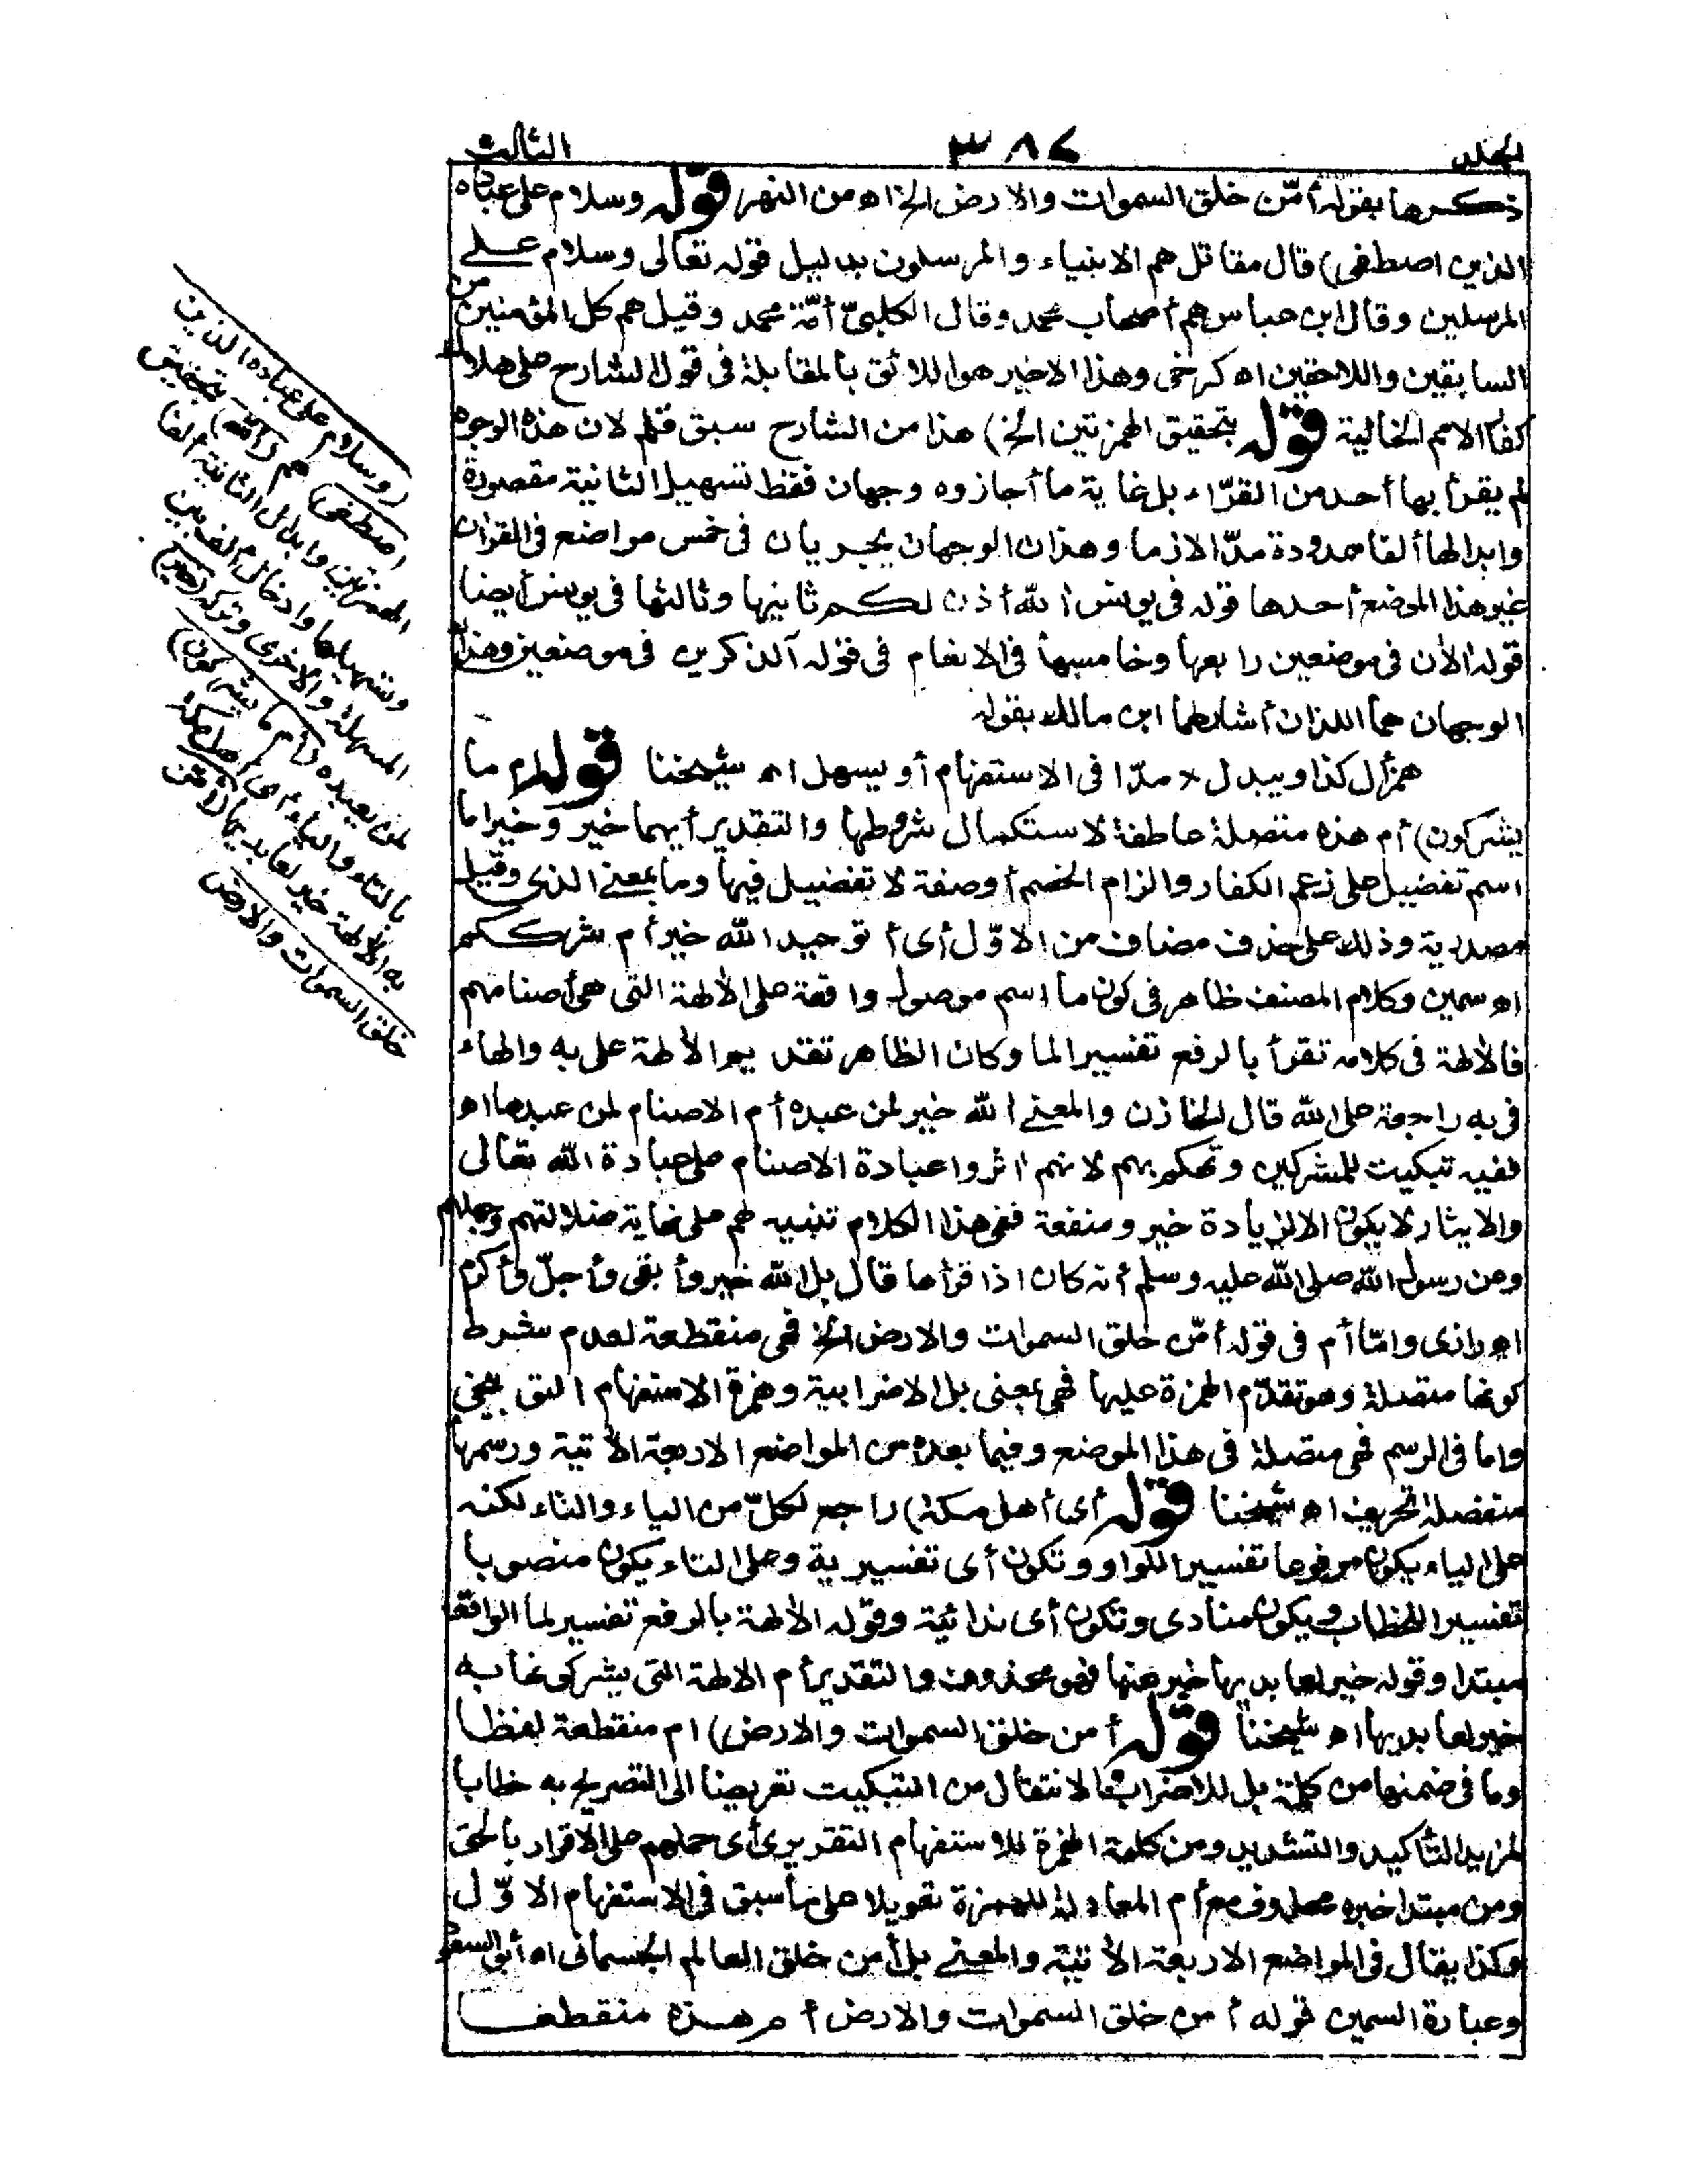 المجلد ٣٨٧ الثالث
ذكرها بقوله أمّن خلق السموات والارض الخ اه من النهر قوله وسلام على عباده
الذين اصطفى) قال مقاتل هم الانبياء والمرسلون بدليل قوله تعالى وسلام على
المرسلين وقال ابن عباس هم أصحاب محمد وقال الكلبىّ أمّة محمد وقيل هم كل المؤمنين من
السابقين واللاحقين اه كرخى وهذا الاخير هو اللائق بالمقابلة فى قول الشارح على هلاك
كفار الامم الخالية قوله بتحقيق الهمزتين الخ) هذا من الشارح سبق قلم لان هذه الوجوه
لم يقرأ بها أحد من القرّاء بل غاية ما أجازوه وجهان فقط تسهيل الثانية مقصورة
وابدالها ألفا ممدودة مدّا لازما وهذان الوجهان يجريان فى خمس مواضع فى القران
غير هذا الموضع أحدها قوله فى يونس آلله أذن لكم ثانيها وثالثها فى يونس أيضا
قوله الآن فى موضعين رابعها وخامسها فى الانعام فى قوله آلذكرين فى موضعين وهذان
الوجهان هما اللذان أشار لهما ابن مالك بقوله
همز أل كذا ويبدل * مدّا فى الاستفهام أو يسهل اه شيخنا قوله أم ما
يشركون) أم هذه متصلة عاطفة لاستكمال شروطها والتقدير أيهما خير وخير اما
اسم تفضيل على زعم الكفار والزام الخصم أو صفة لا تفضيل فيها وما بمعنى الذى وقيل
مصدرية وذلك على حذف مضاف من الاوّل أى أ توحيد الله خير أم شرككم
اه سمين وكلام المصنف ظاهر فى كون ما اسم موصول واقعة على الآلهة التى هى أصنامهم
فالآلهة فى كلامه تقرأ بالرفع تفسيرا لما وكان الظاهر تقديم الآلهة على به والهاء
فى به راجعة على الله قال الخازن والمعنى آلله خير لمن عبده أم الاصنام لمن عبدها اه
ففيه تبكيت للمشركين وتهكم بهم لانهم اثروا عبادة الاصنام على عبادة الله تعالى
والايثار لا يكون الا لزيادة خير ومنفعة ففى هذا الكلام تنبيه لهم على نهاية ضلالتهم وجهلهم
وعن رسول الله صلى الله عليه وسلم أنه كان اذا قرأها قال بل الله خير وأبقى وأجلّ وأكرم
اه رازى وامّا أم فى قوله أمّن خلق السموات والارض الخ فهى منقطعة لعدم شرط
كونها متصلة وهو تقدّم الهمزة عليها فهى بمعنى بل الاضرابية وهمزة الاستفهام
واما فى الرسم فهى متصلة فى هذا الموضع وفيما بعده من المواضع الاربعة الآتية ورسمها
منفصلة تحريف اه شيخنا قوله أى أهل مكة) راجع لكلّ من الياء والتاء لكنه
على الياء يكون مرفوعا تفسيرا للواو وتكون أى تفسيرية وعلى التاء يكون منصوبا
تفسيرا للخطاب ويكون منادى وتكون أى ندائية وقوله الآلهة بالرفع تفسير لما الواقعة
مبتدا وقوله خير لعابديها خبر عنها فهو محذوف والتقدير أم الآلهة التى يشركونها به
خير لعابديها اه شيخنا قوله أمن خلق السموات والارض) ام منقطعة لفظا
وما فى ضمنها من كلمة بل للاضراب والانتقال من التبكيت تعريضا الى التصريح به خطابا
لمزيد التأكيد والتشديد ومن كلمة الهمزة للاستفهام التقريرى أى حملهم على الاقرار بالحق
ومن مبتدا خبره محذوف مع أم المعادلة للهمزة تعويلا على ما سبق فى الاستفهام الاوّل
وكذا يقال فى المواضع الاربعة الآتية والمعنى بل أمن خلق العالم الجسمانى اه أبو السعود
وعبارة السمين قوله أمن خلق السموات والارض أم هذه منقطعة
(وسلام على عباده الذين
اصطفى) هم (آلله) بتحقيق
الهمزتين وابدال الثانية ألفا
وتسهيلها وادخال ألف بين
المسهلة والاخرى وتركه (خير)
لمن يعبده (أم ما يشركون)
بالتاء والياء أى أهل مكة
به الآلهة خير لعابديها (أمّن
خلق السموات والارض